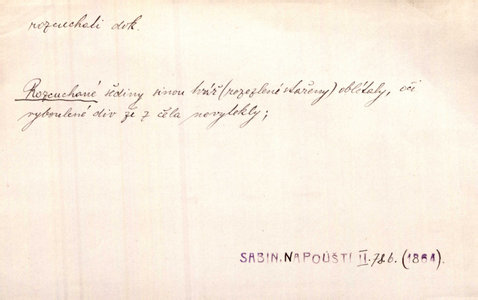 rozcuchati dok.
Rozcuchané šediny sinou tvář (rozezlené stařeny) oblétaly, oči
vyboulené div že z čela nevytekly;
SABIN. NA POUŠTI II. 786. (1864)